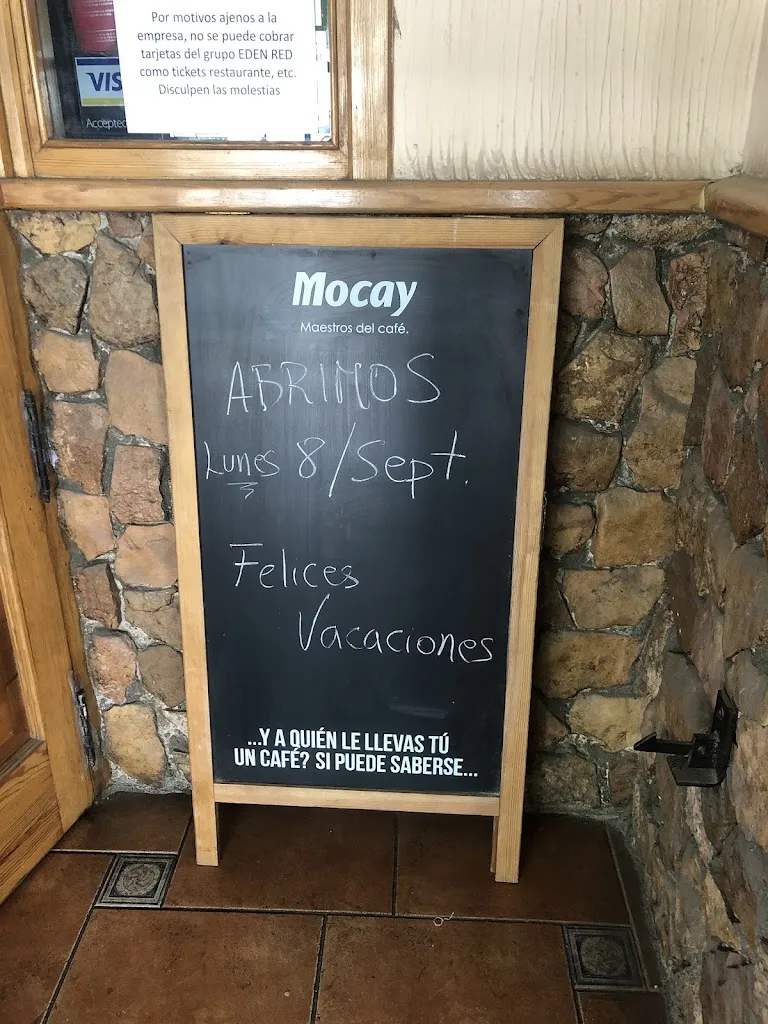 Por motivos ajenos a la
empresa, no se puede cobrar
tarjetas del grupo EDEN RED
como tickets restaurante, etc.
Disculpen las molestias
VIS
Accepted
Mocay
Maestros del café.
ABRIMOS
Lunes 8/Sept.
Felices
Vacaciones
...Y A QUIÉN LE LLEVAS TÚ
UN CAFÉ? SI PUEDE SABERSE...